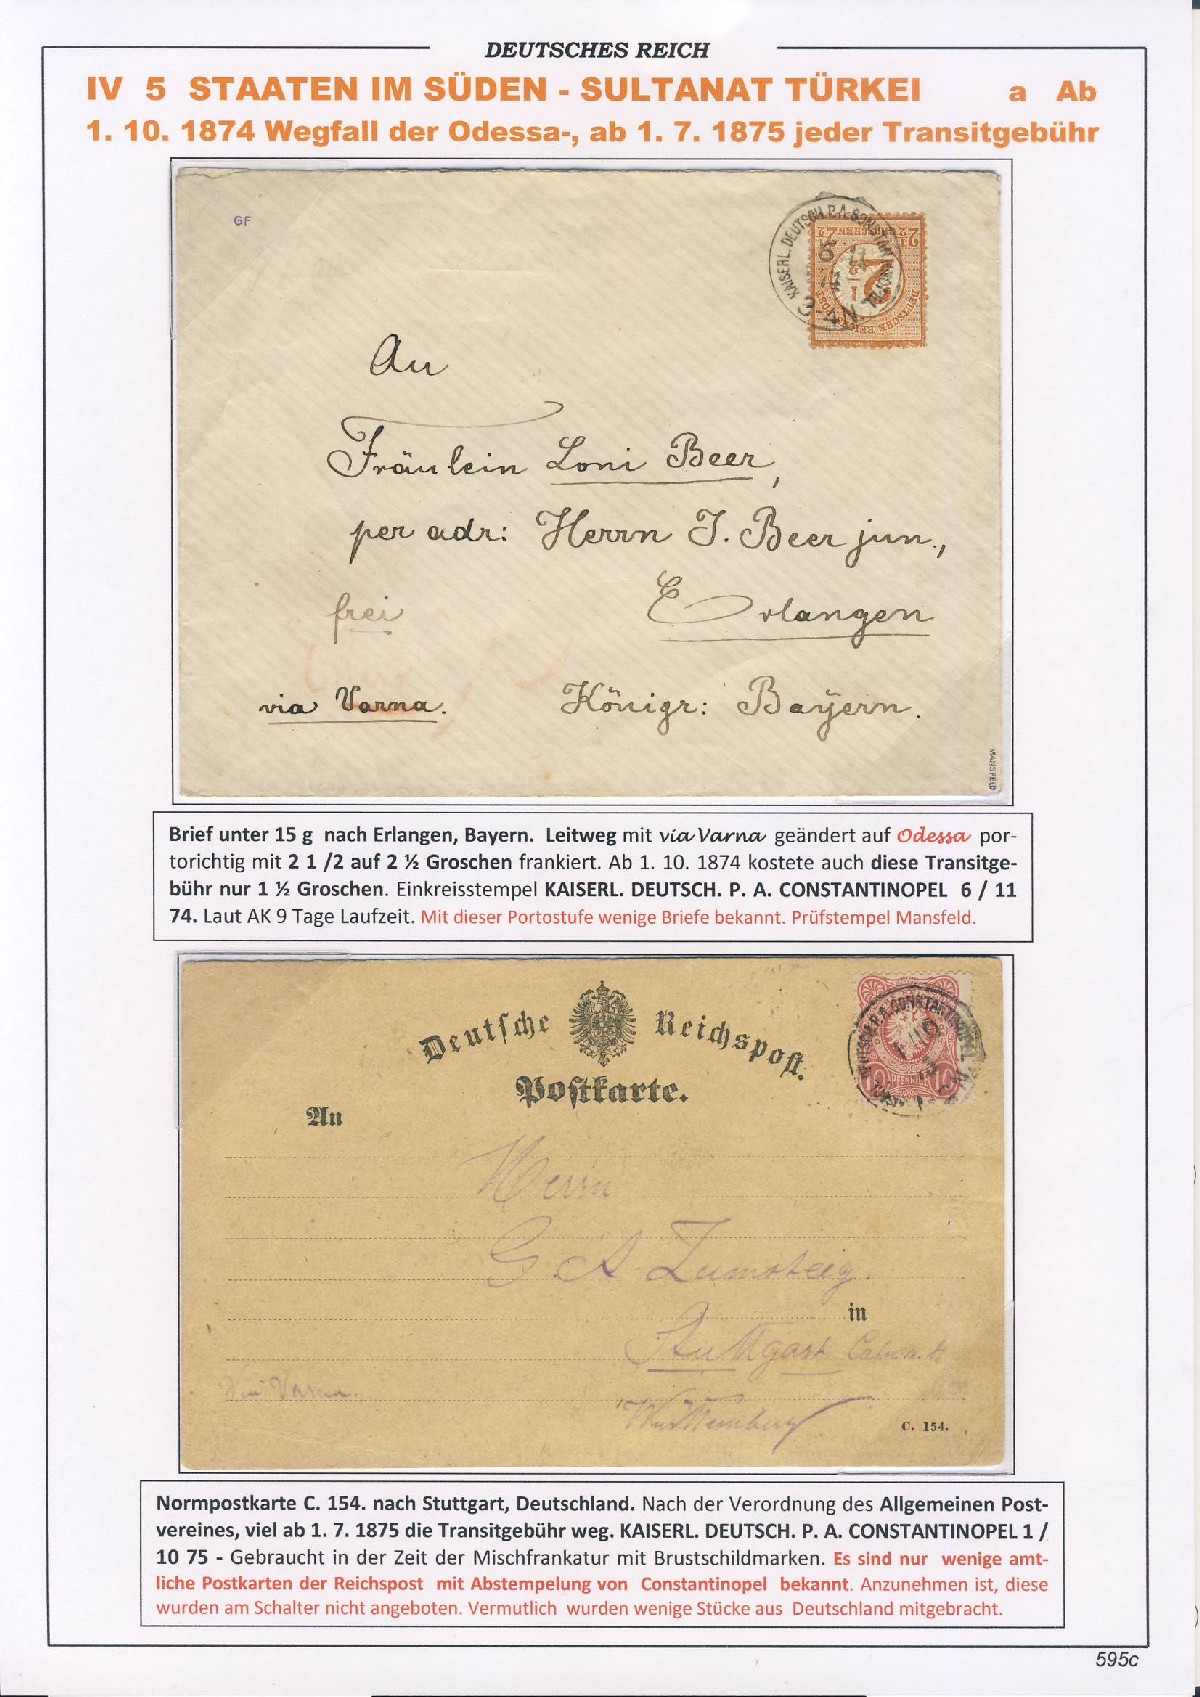 DEUTSCHES REICH
IV 5 STAATEN IM SÜDEN - SULTANAT TÜRKEI a Ab
1. 10. 1874 Wegfall der Odessa-, ab 1. 7. 1875 jeder Transitgebühr
GF
KAISERL. DEUTSCH. P. A. CONSTANTINOPEL
6 11
74
3-4 N
2 1/2
DEUTSCHE REICHS POST
An
Fräulein Loni Beer,
per adr: Herrn J. Beer jun.,
frei
Erlangen
via Varna.
Königr: Bayern.
MANSFELD
Brief unter 15 g nach Erlangen, Bayern. Leitweg mit via Varna geändert auf Odessa por-
torichtig mit 2 1 /2 auf 2 ½ Groschen frankiert. Ab 1. 10. 1874 kostete auch diese Transitge-
bühr nur 1 ½ Groschen. Einkreisstempel KAISERL. DEUTSCH. P. A. CONSTANTINOPEL 6 / 11
74. Laut AK 9 Tage Laufzeit. Mit dieser Portostufe wenige Briefe bekannt. Prüfstempel Mansfeld.
Deutsche Reichspost.
Postkarte.
10 PFENNIGE 10
An
Herrn
G A Zumsteig.
in
Stuttgart
via Varna.
Württemberg
C. 154.
Normpostkarte C. 154. nach Stuttgart, Deutschland. Nach der Verordnung des Allgemeinen Post-
vereines, viel ab 1. 7. 1875 die Transitgebühr weg. KAISERL. DEUTSCH. P. A. CONSTANTINOPEL 1 /
10 75 - Gebraucht in der Zeit der Mischfrankatur mit Brustschildmarken. Es sind nur wenige amt-
liche Postkarten der Reichspost mit Abstempelung von Constantinopel bekannt. Anzunehmen ist, diese
wurden am Schalter nicht angeboten. Vermutlich wurden wenige Stücke aus Deutschland mitgebracht.
595c